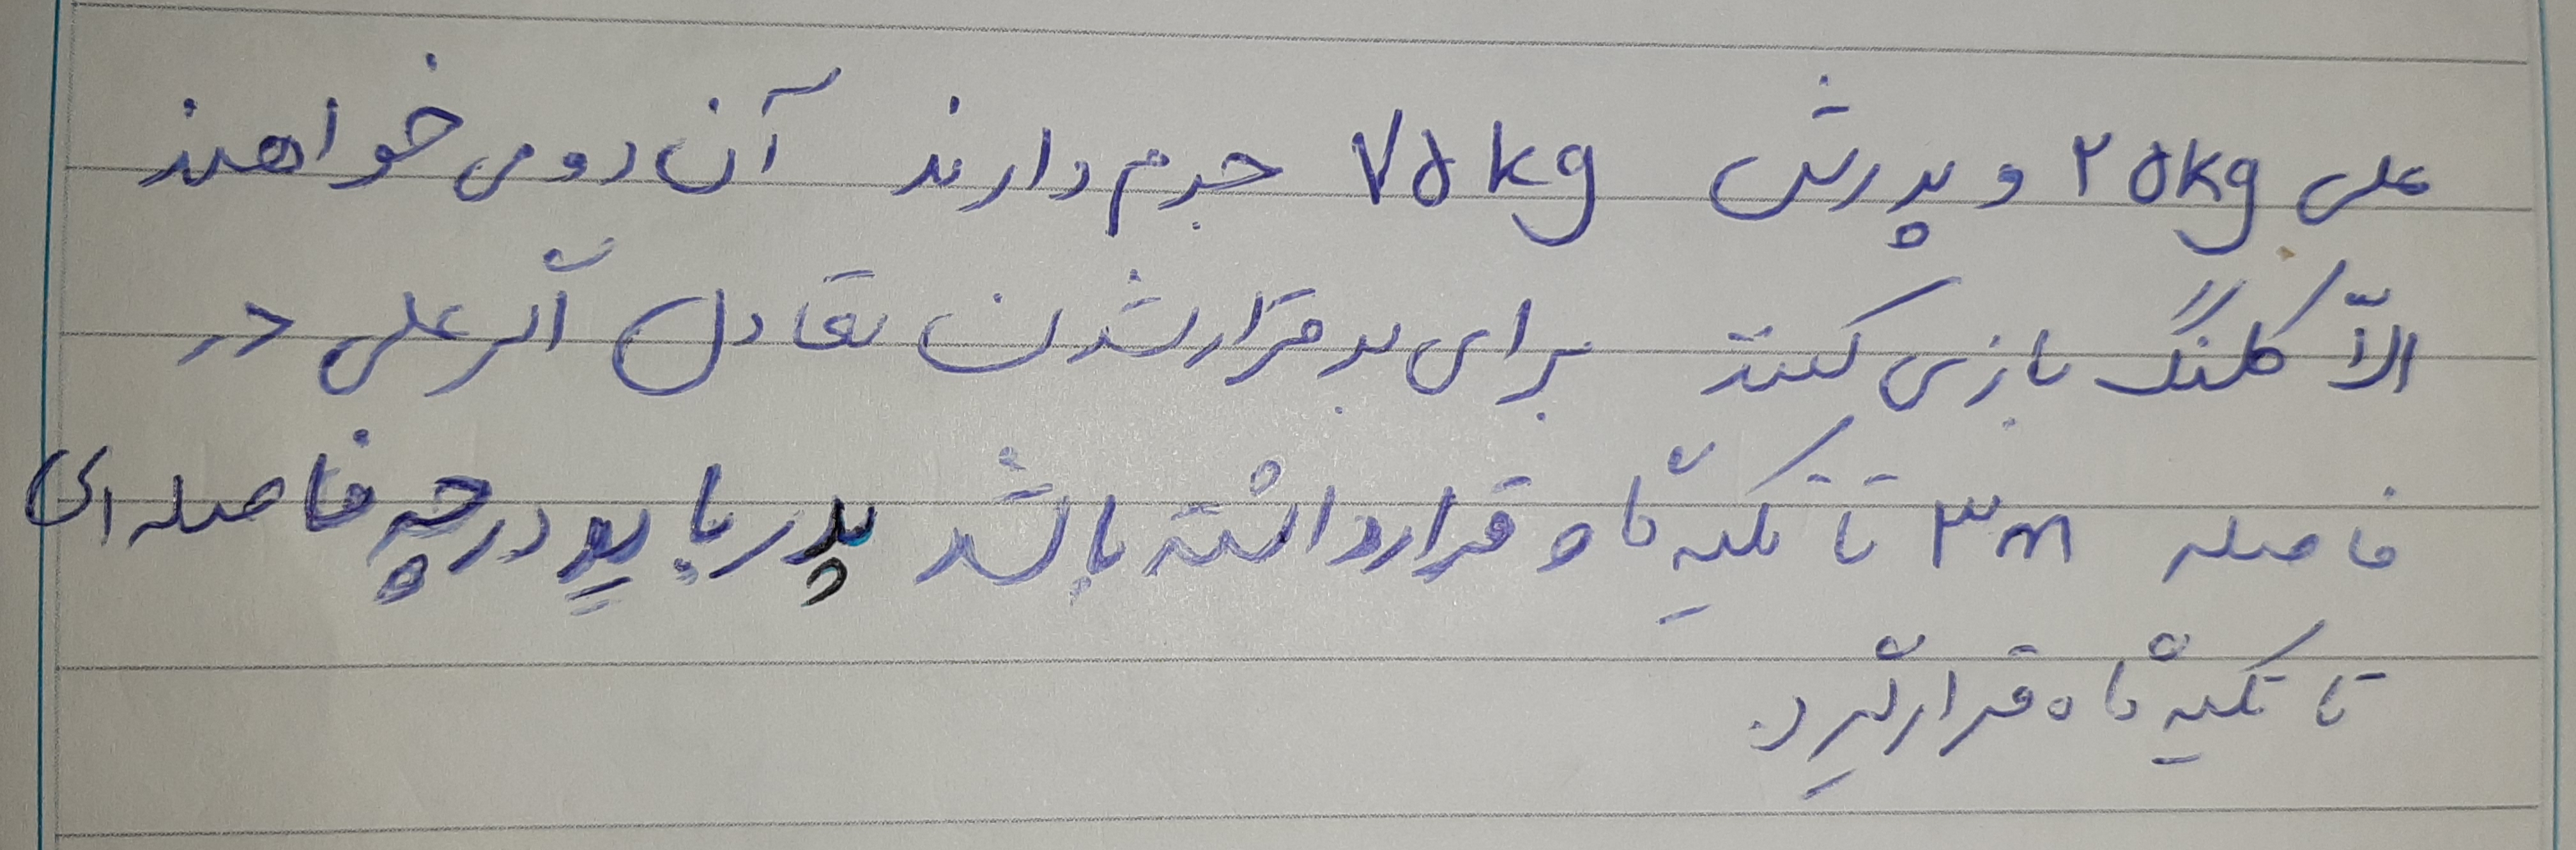 علی ۲۵kg و پدرش ۷۵kg جرم دارند آن دو می خواهند
الاّ کلنگ بازی کنند برای برقرار شدن تعادل اگر علی در
فاصله ۳m تا تکیه گاه قرار داشته باشد پدر باید در چه فاصله ای
تا تکیه گاه قرار گیرد.